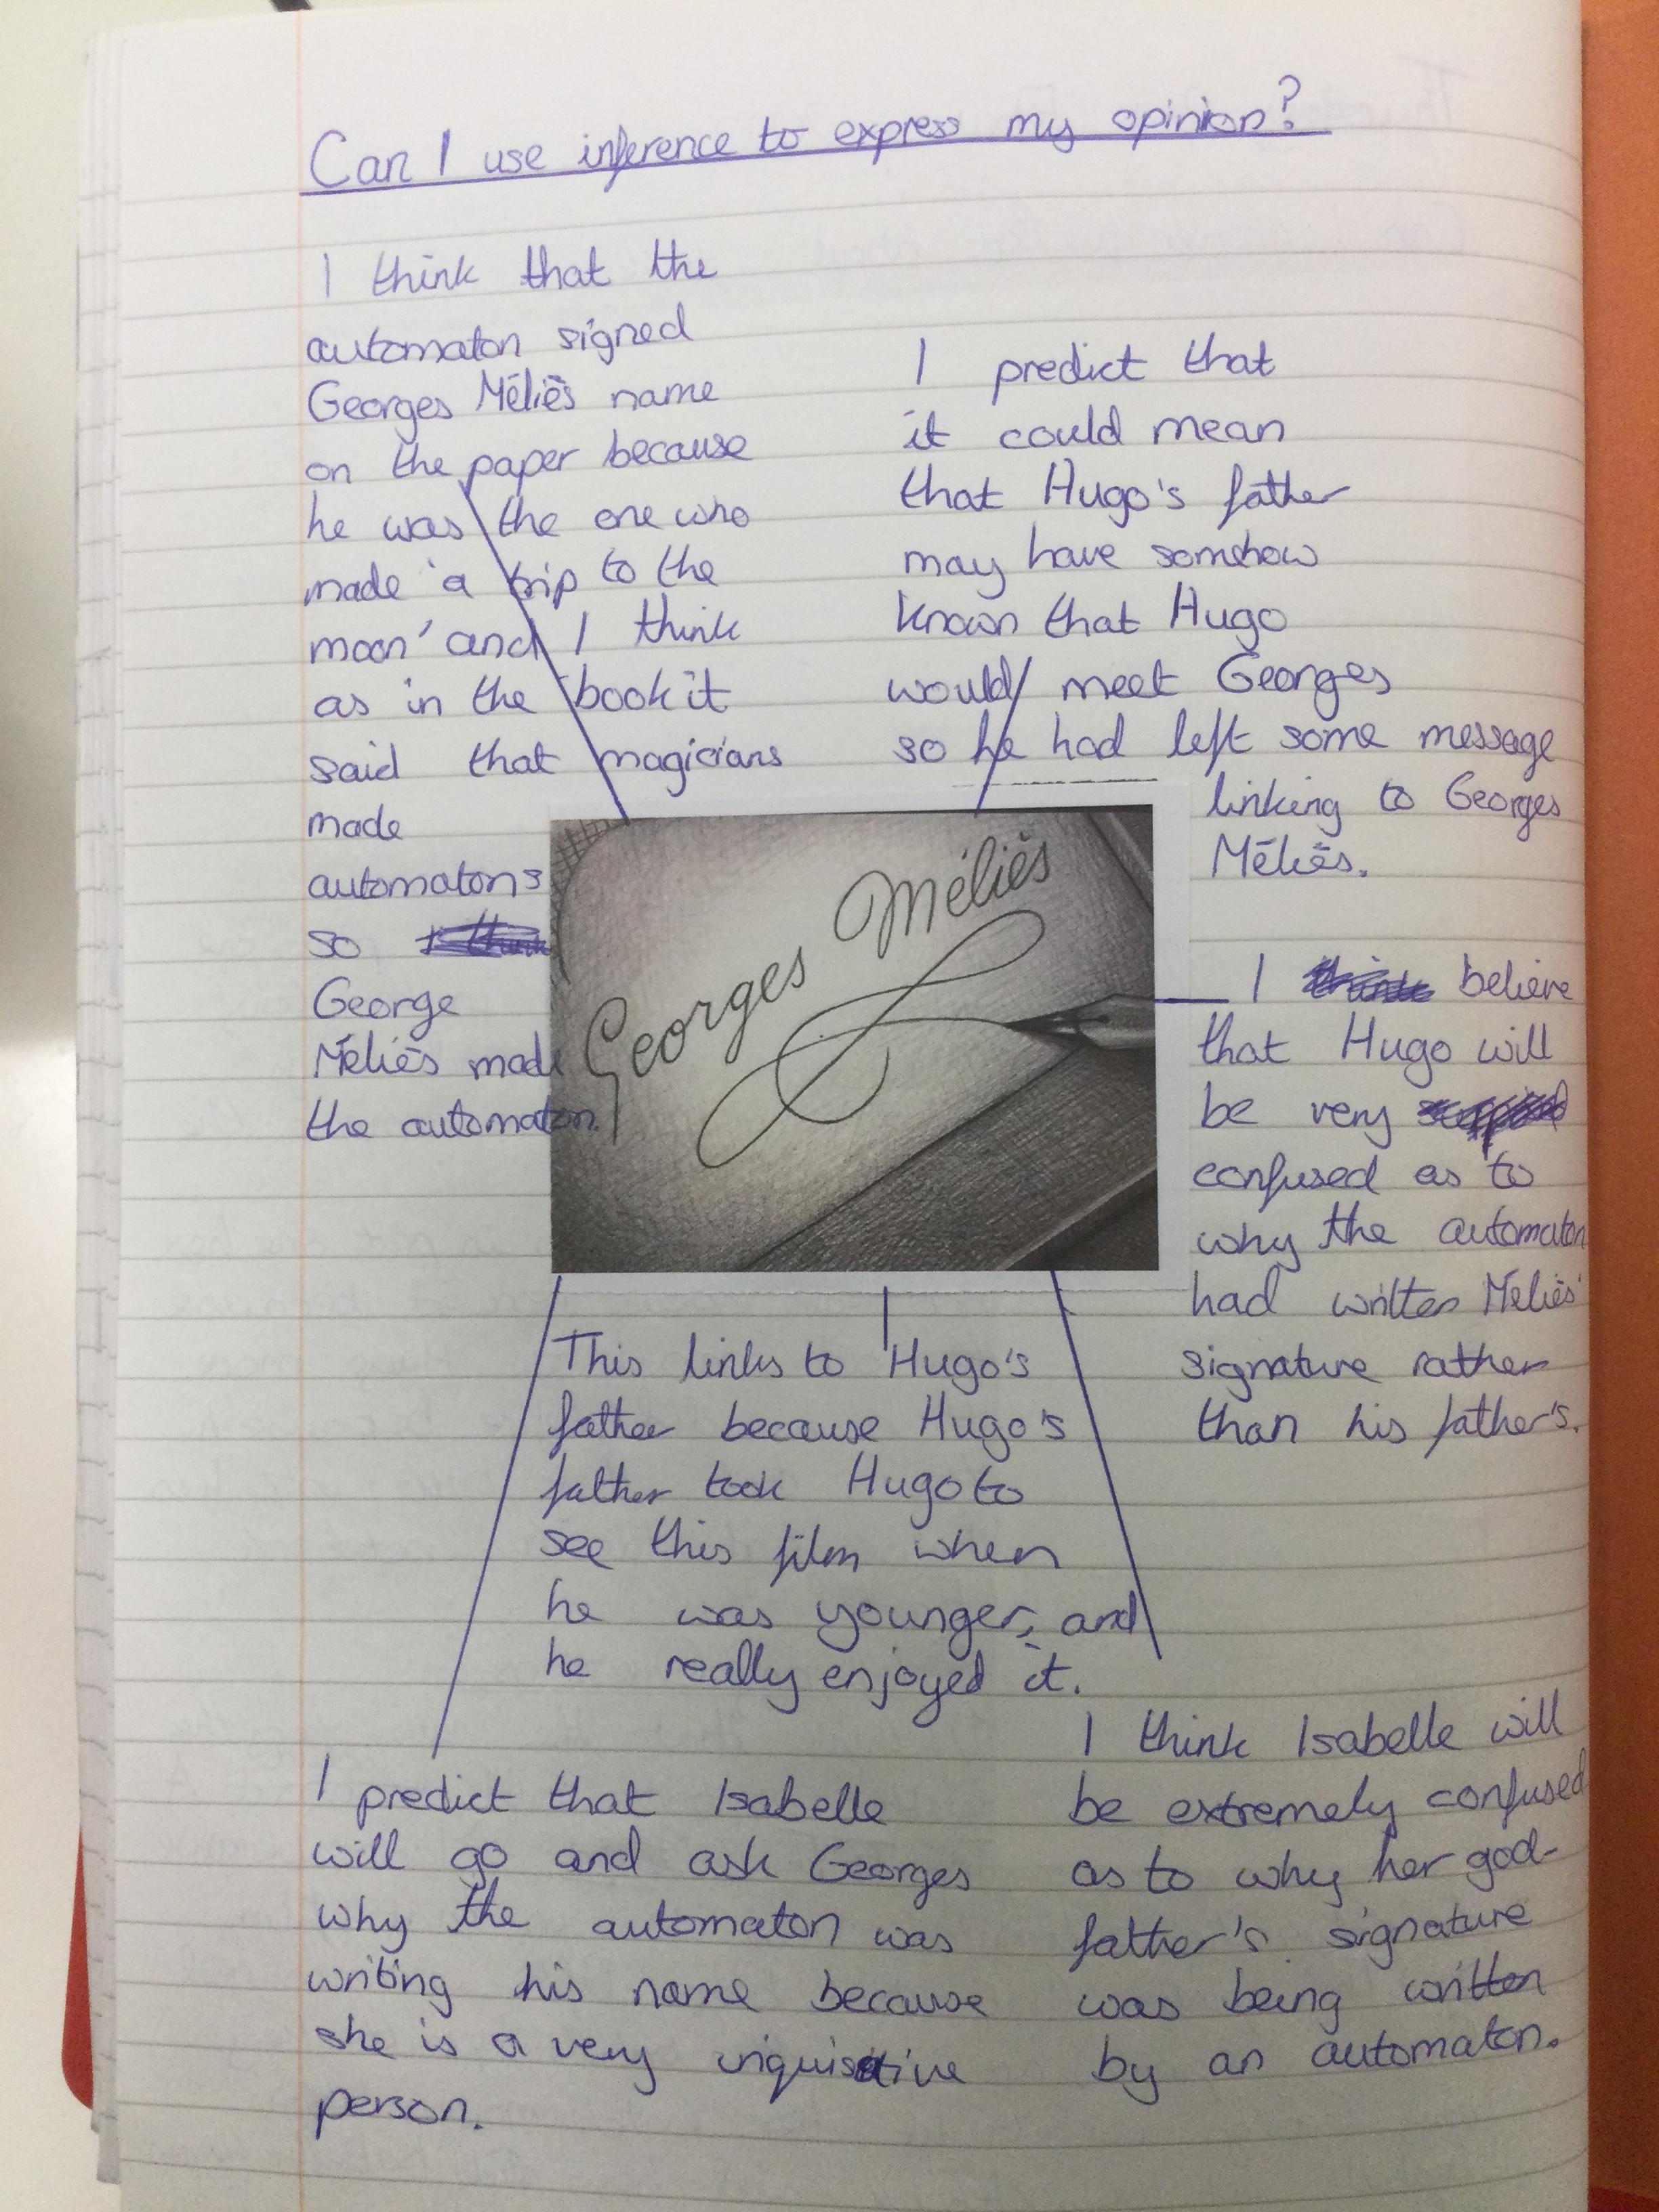 Can I use inference to express my opinion?
I think that the
automaton signed
Georges Méliès name
on the paper because
he was the one who
made 'a trip to the
moon' and I think
as in the book it
said that magicians
made
automatons
so
George
Méliès made
the automaton.
I predict that
it could mean
that Hugo's father
may have somehow
known that Hugo
would meet Georges
so he had left some message
linking to Georges
Méliès.
Georges Méliès
I believe
that Hugo will
be very
confused as to
why the automaton
had written Méliès'
signature rather
than his father's.
This links to Hugo's
father because Hugo's
father took Hugo to
see this film when
he was younger, and
he really enjoyed it.
I predict that Isabelle
will go and ask Georges
why the automaton was
writing his name because
she is a very inquisitive
person.
I think Isabelle will
be extremely confused
as to why her god-
father's signature
was being written
by an automaton.